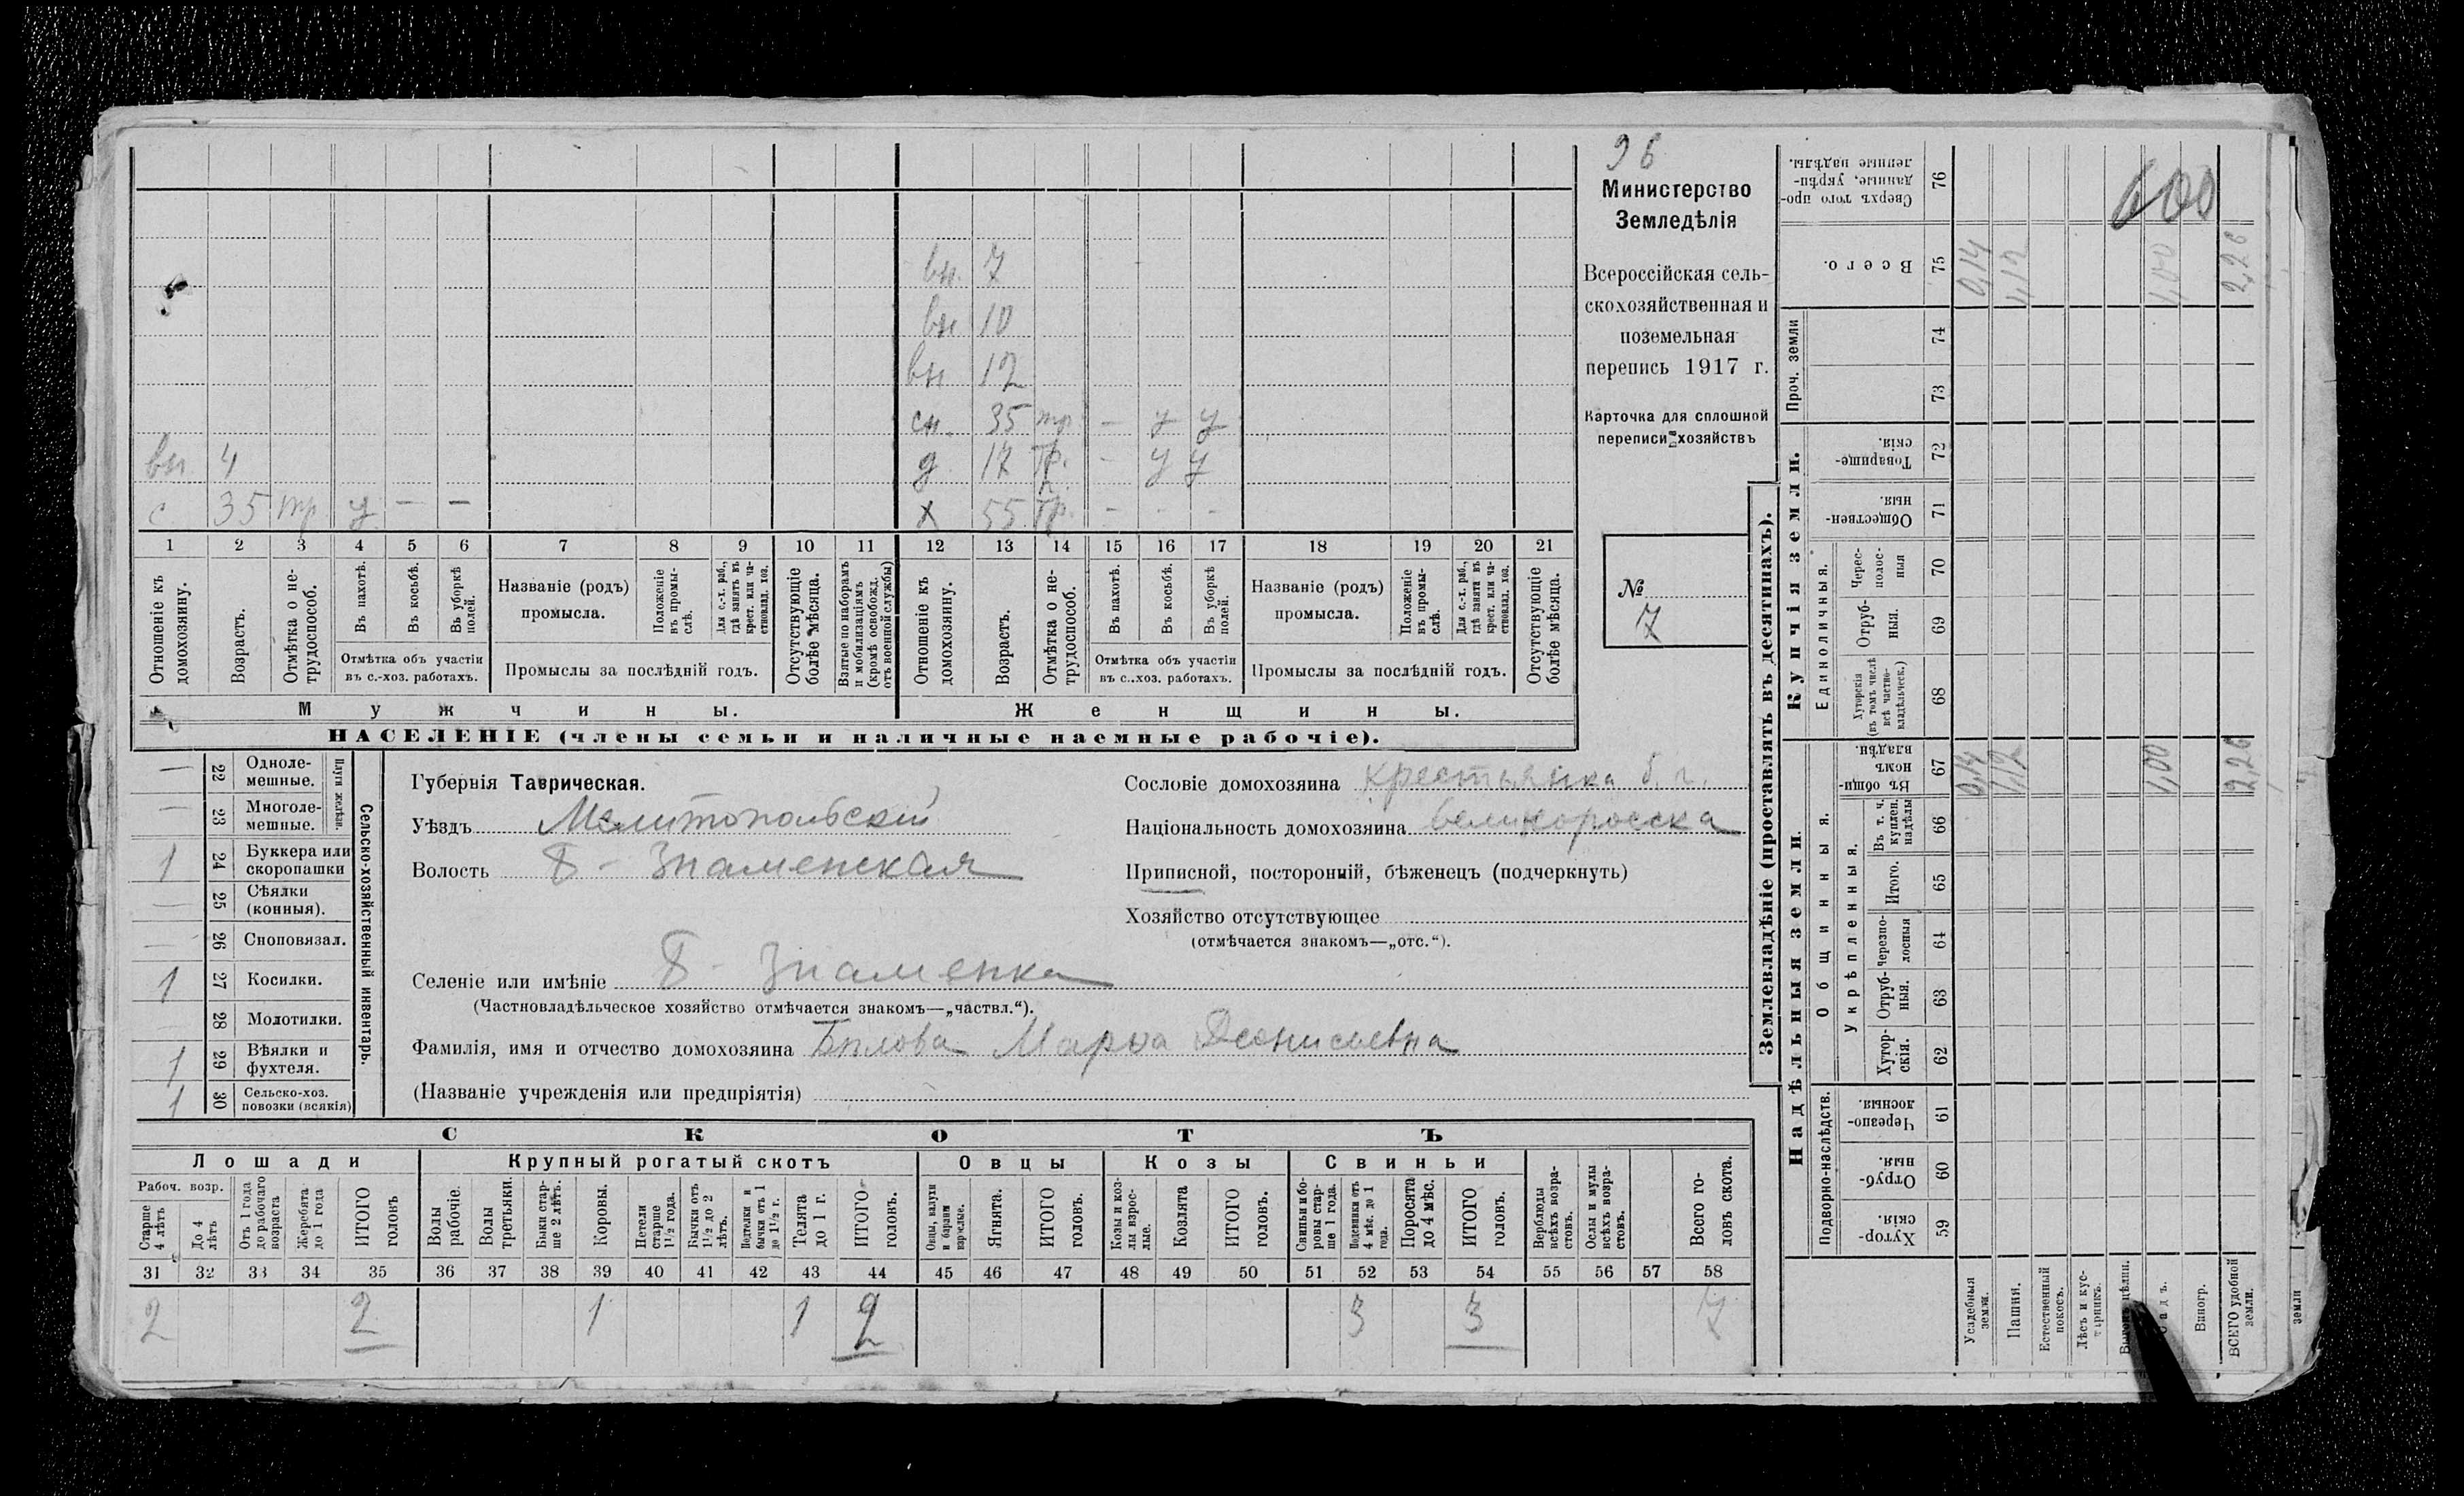 96
Министерство
Земледѣлія
Всероссійская сель-
скохозяйственная и
поземельная
перепись 1917 г.
Карточка для сплошной
переписи хозяйствъ
№
7
вн. 7
вн 10
вн 12
сн. 35 тр - у у
вн. 4 д 17 тр. - у у
с 35 тр у - - х 55 тр. - - -
1 2 3 4 5 6 7 8 9 10 11 12 13 14 15 16 17 18 19 20 21
Отношеніе къ домохозяину.
Возрастъ.
Отмѣтка о не-трудоспособ.
Въ пахотѣ.
Въ косьбѣ.
Въ уборкѣ полей.
Отмѣтка объ участіи
въ с.-хоз. работахъ.
Названіе (родъ)
промысла.
Положеніе въ промы-слѣ.
Для с.-х. раб., гдѣ занятъ въ крест. или ча-стновлад. хоз.
Промыслы за послѣдній годъ.
Отсутствующіе болѣе мѣсяца.
Взятые по наборамъ и мобилизаціямъ (кромѣ освобожд. отъ военной службы)
Отношеніе къ домохозяину.
Возрастъ.
Отмѣтка о не-трудоспособ.
Въ пахотѣ.
Въ косьбѣ.
Въ уборкѣ полей.
Отмѣтка объ участіи
въ с..хоз. работахъ.
Названіе (родъ)
промысла.
Положеніе въ промы-слѣ.
Для с.-х. раб., гдѣ занятъ въ крест. или ча-стновлад. хоз.
Промыслы за послѣдній годъ.
Отсутствующіе болѣе мѣсяца.
Мужчины. Женщины.
НАСЕЛЕНІЕ (члены семьи и наличные наемные рабочіе).
— 22 Одноле-мешные.
— 23 Многоле-мешные.
Плуги желѣзн.
1 24 Буккера или скоропашки
— 25 Сѣялки (конныя).
— 26 Сноповязал.
1 27 Косилки.
28 Молотилки.
1 29 Вѣялки и фухтеля.
1 30 Сельско-хоз. повозки (всякія)
Сельско-хозяйственный инвентарь.
Губернія Таврическая.
Уѣздъ Мелитопольскій
Волость Б - Знаменская
Сословіе домохозяина крестьянка б. г.
Національность домохозяина великоросска
Приписной, посторонній, бѣженецъ (подчеркнуть)
Хозяйство отсутствующее
(отмѣчается знакомъ—„отс.“).
Селеніе или имѣніе Б - Знаменка
(Частновладѣльческое хозяйство отмѣчается знакомъ—„частвл.“).
Фамилія, имя и отчество домохозяина Бѣлова Марѳа Деонисьевна
(Названіе учрежденія или предпріятія)
СКОТЪ
Лошади Крупный рогатый скотъ Овцы Козы Свиньи
Рабоч. возр.
Старше 4 лѣтъ
До 4 лѣтъ
Отъ 1 года до рабочаго возраста
Жеребята до 1 года
ИТОГО головъ
Волы рабочіе.
Волы третьяки.
Быки стар-ше 2 лѣтъ.
Коровы.
Нетели старше 1½ года.
Бычки отъ 1½ до 2 лѣтъ.
Подтелки и бычки отъ 1 до 1½ г.
Телята до 1 г.
ИТОГО головъ.
Овцы, валухи и бараны взрослые.
Ягнята.
ИТОГО головъ.
Козы и коз-лы взрос-лые.
Козлята
ИТОГО головъ.
Свиньи и бо-ровы стар-ше 1 года.
Подсвинки отъ 4 мѣс. до 1 года.
Поросята до 4 мѣс.
ИТОГО головъ.
Верблюды всѣхъ возра-стовъ.
Ослы и мулы всѣхъ возра-стовъ.
Всего го-ловъ скота.
31 32 33 34 35 36 37 38 39 40 41 42 43 44 45 46 47 48 49 50 51 52 53 54 55 56 57 58
2 2 1 1 2 3 3 7
Землевладѣніе (проставлять въ десятинахъ).
Надѣльныя земли
Купчія земли.
Проч. земли
Подворно-наслѣдств.
Общинныя.
Укрѣпленныя.
Единоличныя.
Хутор-скія. 59
Отруб-ныя. 60
Черезпо-лосныя. 61
Хутор-скія. 62
Отруб-ныя. 63
Черезпо-лосныя 64
Итого. 65
Въ т. ч. куплен. надѣлы 66
Въ общи-номъ владѣн. 67
Хуторскія (въ томъ числѣ всѣ частно-владѣльческ.) 68
Отруб-ныя. 69
Черес-полос-ныя 70
Обществен-ныя 71
Товарище-скія. 72
73
74
Всего. 75
Сверхъ того про-данные, укрѣп-ленные надѣлы. 76
Усадебныя земли. 0,14 0,14
Пашня. 1,12 1,12
Естественный покосъ.
Лѣсъ и кус-тарникъ.
1,00 1,00
Виногр.
ВСЕГО удобной земли. 2,26 2,26
600
земли